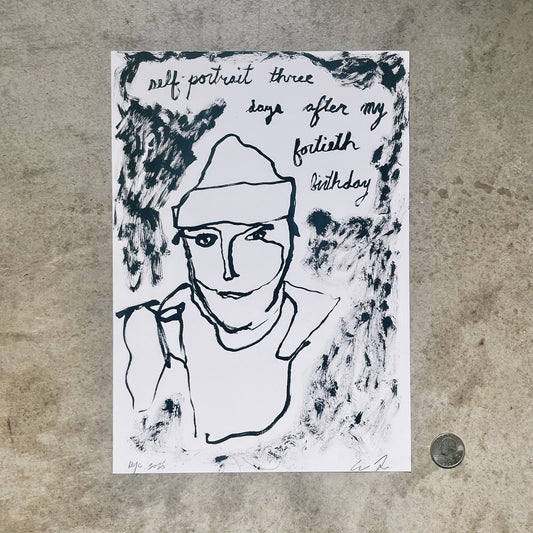 self portrait three
days after my
fortieth
birthday
NYC, 2025